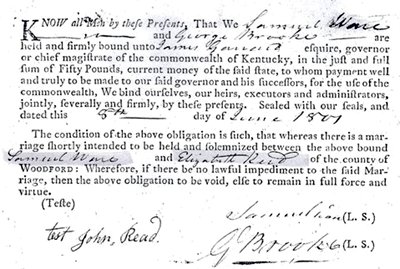 KNOW all Men by these Presents, That We Samuel Ware
and George Brooke are
held and firmly bound unto James Garrard esquire, governor
or chief magistrate of the commonwealth of Kentucky, in the just and full
sum of Fifty Pounds, current money of the said state, to whom payment well
and truly to be made to our said governor and his successors, for the use of the
commonwealth, We bind ourselves, our heirs, executors and administrators,
jointly, severally and firmly, by these presents. Sealed with our seals, and
dated this 8th day of June 1801
The condition of the above obligation is such, that whereas there is a mar-
riage shortly intended to be held and solemnized between the above bound
Samuel Ware and Elizabeth Read of the county of
WOODFORD: Wherefore, if there be no lawful impediment to the said Mar-
riage, then the above obligation to be void, else to remain in full force and
virtue.
(Teste)
Samuel (L. S.)
test John, Read.
G Brooke (L. S.)